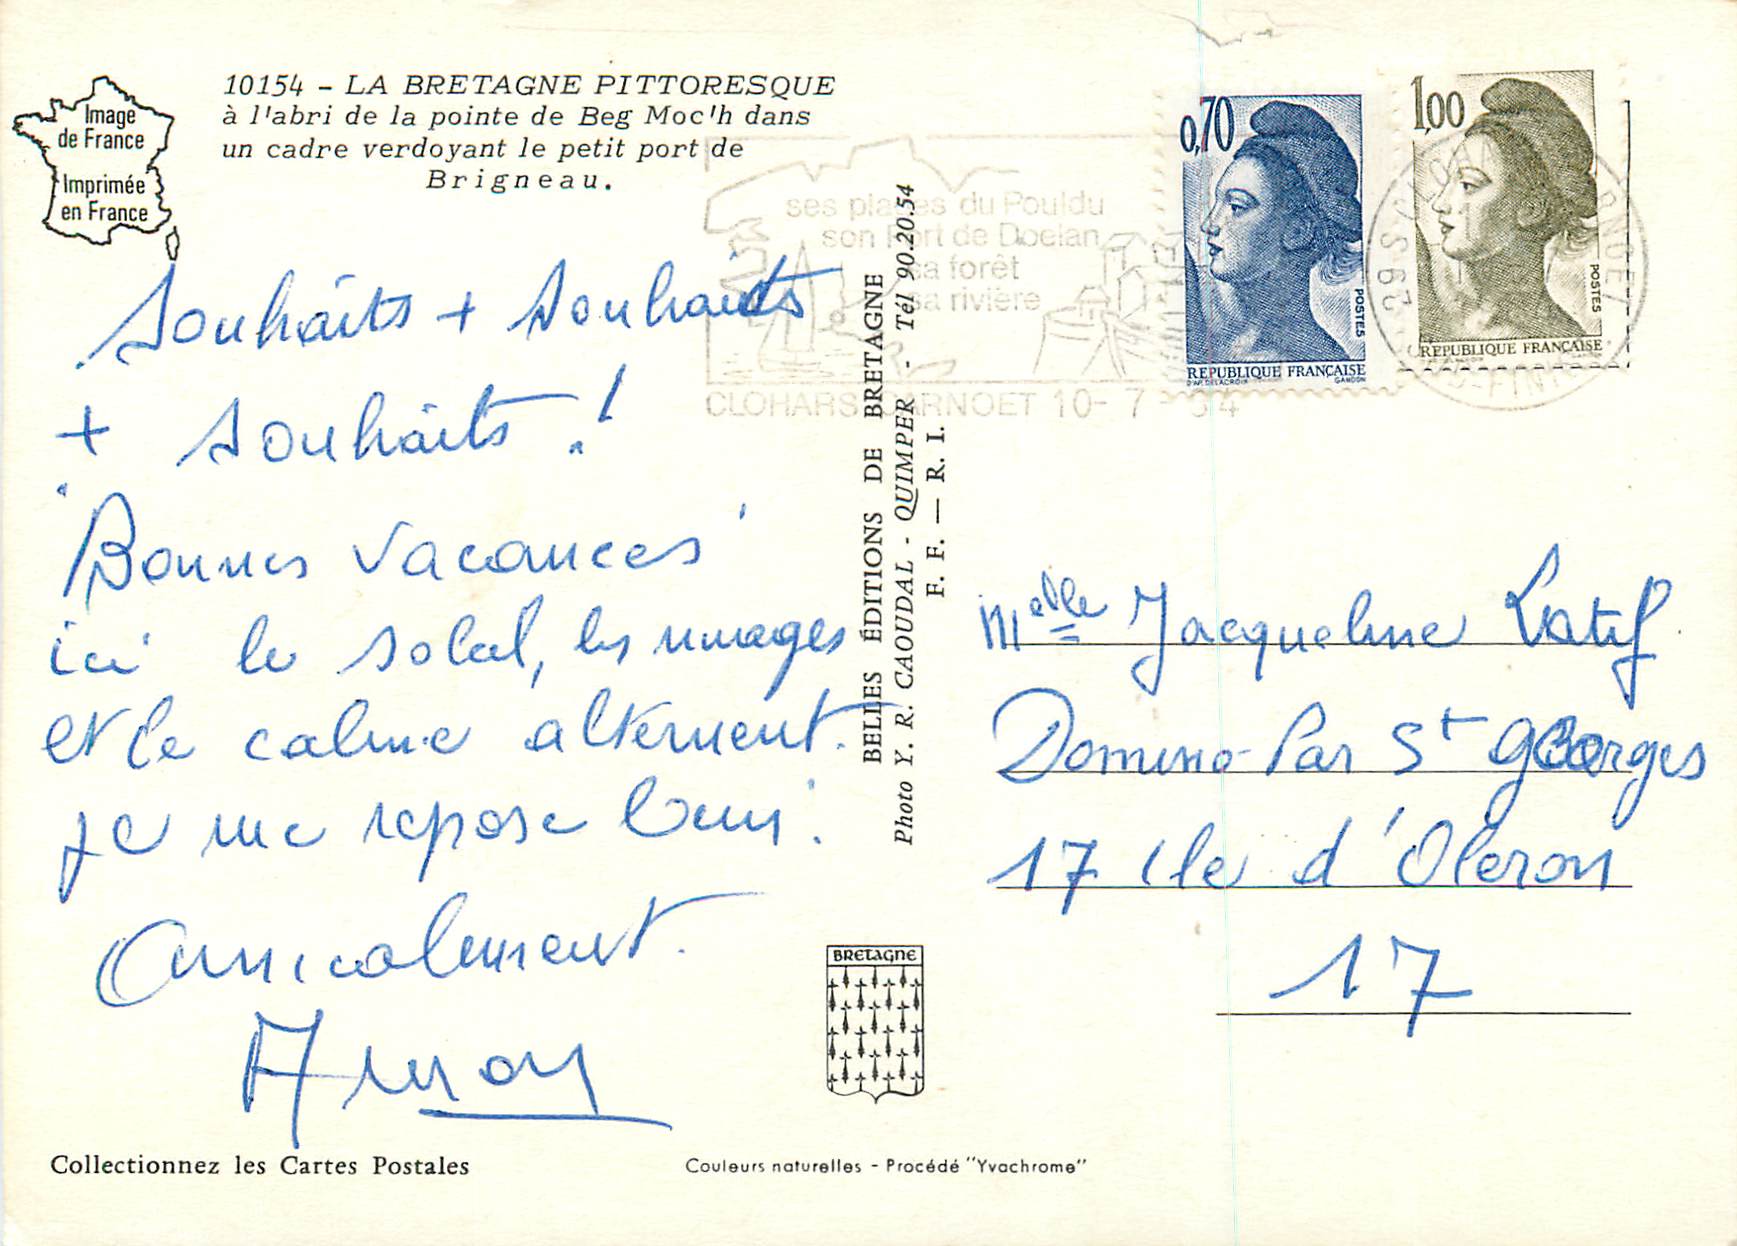 Image
de France
Imprimée
en France
10154 - LA BRETAGNE PITTORESQUE
à l'abri de la pointe de Beg Moc'h dans
un cadre verdoyant le petit port de
Brigneau.
Souhaits + souhaits
+ souhaits !
Bonnes vacances
ici le soleil, les nuages
et le calme alternent.
Je me repose bien.
Amicalement.
Collectionnez les Cartes Postales
BELLES ÉDITIONS DE BRETAGNE
Photo Y. R. CAOUDAL - QUIMPER - Tél 90.20.54
F. F. — R. I.
BRETAGNE
Couleurs naturelles - Procédé "Yvachrome"
ses plages du Pouldu
son Port de Doelan
sa forêt
sa rivière
CLOHARS CARNOET
0,70
POSTES
REPUBLIQUE FRANÇAISE
D'AP. DELACROIX GANDON
1,00
POSTES
REPUBLIQUE FRANÇAISE
Melle Jacqueline Latif
Domino-Par St Georges
17 Ile d'Oleron
17